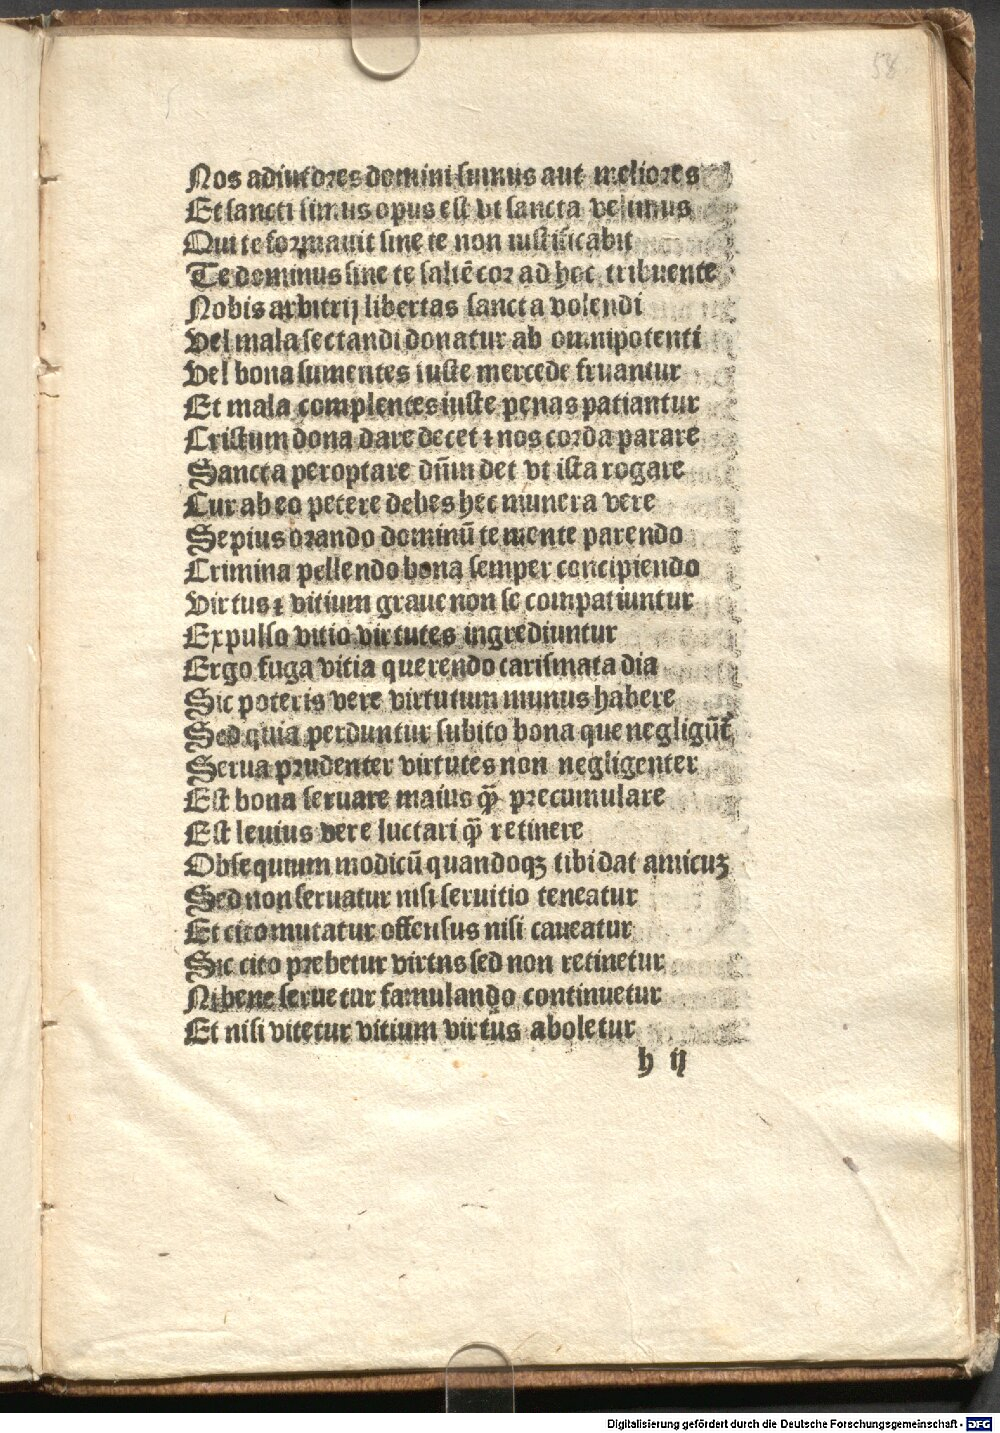 58
Nos adiutores domini sumus aut meliores
Et sancti simus opus est vt sancta velimus
Qui te formauit sine te non iustificabit
Te dominus sine te saltē cor ad hoc tribuente
Nobis arbitrij libertas sancta volendi
Vel mala sectandi donatur ab omnipotenti
Vel bona sumentes iuste mercede fruantur
Et mala complentes iuste penas patiantur
Cristum dona dare decet ⁊ nos corda parare
Sancta peroptare dn̄m det vt ista rogare
Cur ab eo petere debes hec munera vere
Sepius orando dominū te mente parendo
Crimina pellendo bona semper concipiendo
Virtus ⁊ vitium graue non se compatiuntur
Expulso vitio virtutes ingrediuntur
Ergo fuga vitia querendo carismata dia
Sic poteris vere virtutum munus habere
Sed quia perduntur subito bona que negligūt̄
Serua prudenter virtutes non negligenter
Est bona seruare maius qȝ̄ precumulare
Est leuius vere luctari qȝ̄ retinere
Obsequium modicū quandoqꝫ tibi dat amicuꝫ
Sed non seruatur nisi seruitio teneatur
Et cito mutatur offensus nisi caueatur
Sic cito prebetur virtus sed non retinetur
Ni bene seruetur famulando continuetur
Et nisi vitetur vitium virtus aboletur
h ij
Digitalisierung gefördert durch die Deutsche Forschungsgemeinschaft - DFG